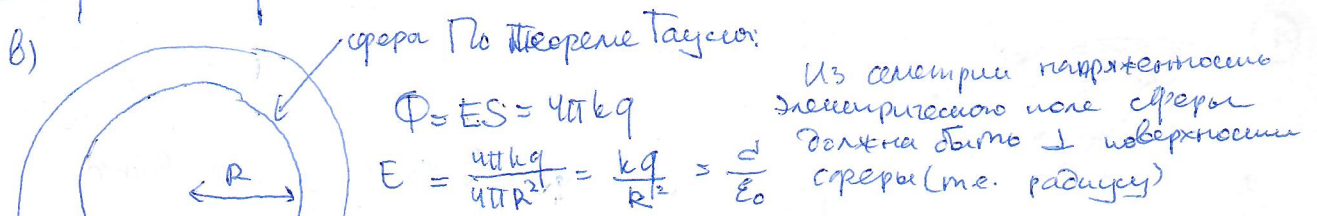 в)
сфера По Теореме Гаусса:
Ф = ES = 4πkq
E = 4πkq / 4πR² = kq / R² = σ / ε₀
R
Из симетрии напряженность
электрического поле сферы
должна быть ⊥ поверхности
сферы (т.е. радиусу)